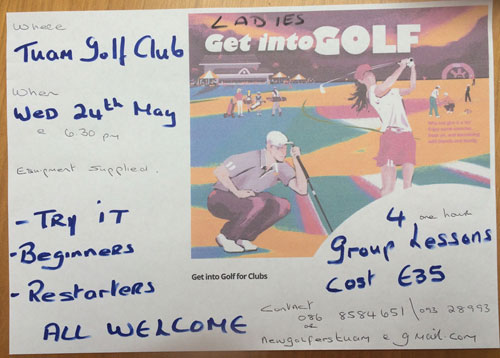 Where
Tuam Golf Club
When
Wed 24th May
@ 6.30 pm
Equipment Supplied.
- Try iT
- Beginners
- Restarters
ALL WELCOME
LADIES
Get into GOLF
Get into Golf for Clubs
4 one hour
Group Lessons
Cost €35
Contact
086 8584651 \ 093 28993
or
newgolferstuam @ gmail.com